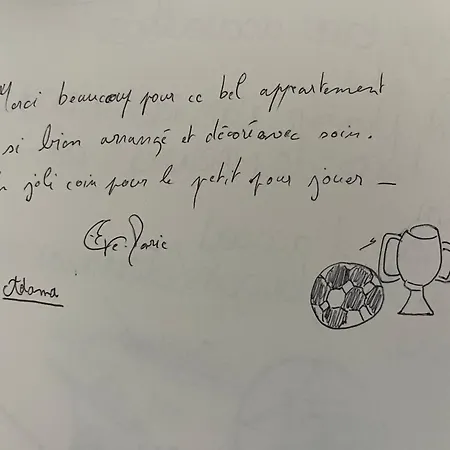 Merci beaucoup pour ce bel appartement
si bien arrangé et décoré avec soin.
joli coin pour le petit pour jouer —
Eve-Marie
Adama